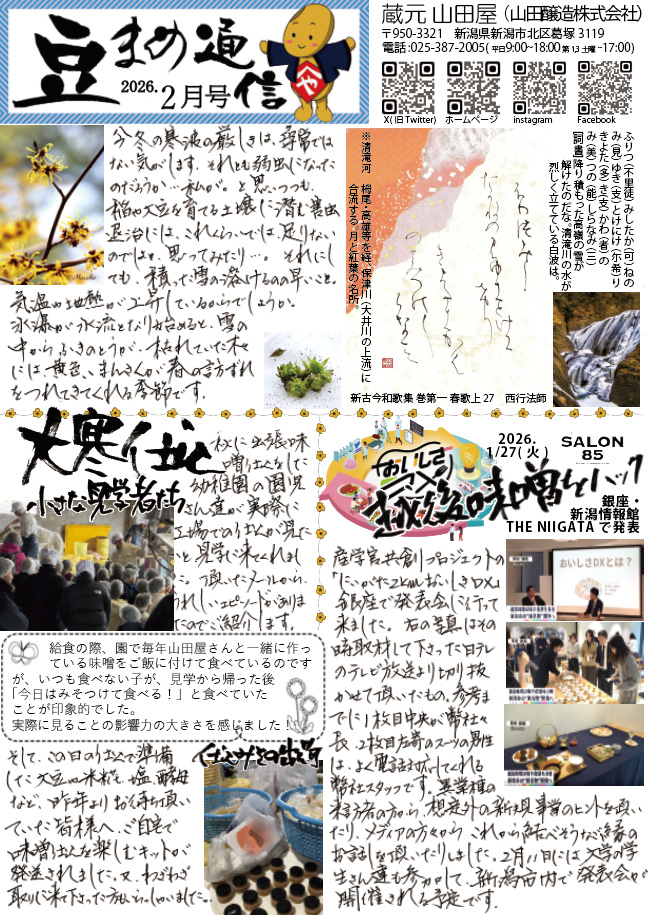 豆まめ通信
2026.
2月号
蔵元 山田屋（山田醸造株式会社）
〒950-3321　新潟県新潟市北区葛塚 3119
電話:025-387-2005( 平日9:00~18:00 第1.3 土曜~17:00)
X( 旧 Twitter)
ホームページ
instagram
Facebook
今冬の寒波の厳しさは、尋常では
ない気がします。それとも幼虫になった
のだろうか…私が。と思いつつも、
稲や大豆を育てる土壌に潜む害虫
退治には、これくらいでは足りない
のではと、思ってみたり…。それにし
ても、積った雪の溶けるのの早いこと。
気温か地熱が上昇しているからでしょうか。
氷瀑が水流となり始めると、雪の
中からふきのとうが、枯れていた枝
には黄色いまんさくが春の訪ずれ
をつれてきてくれる季節です。
ふりつ(不里徒)みしたか(可)ねの
み(見)ゆき(支)とけにけ(尓希)り
きよた(多)き(支)かわ(者)の
み(美)つの(能)しらなみ(三)
[詞書]降り積もった高嶺の雪が
解けたのだな。清滝川の水が
烈しく立てている白波は。
※清滝河　栂尾・高雄等を経、保津川(大井川の上流)に
合流する。月と紅葉の名所。
新古今和歌集 巻第一 春歌上 27　西行法師
大寒仕込
小さな見学者たち
秋に出張味
噌仕込をした
幼稚園の園児
さん達が実際に
工場での仕込が見た
いと見学に来てくれまし
た。頂いたメールから、
うれしいエピソードがありま
したのでご紹介します。
給食の際、園で毎年山田屋さんと一緒に作っ
ている味噌をご飯に付けて食べているのです
が、いつも食べない子が、見学から帰った後
「今日はみそつけて食べる！」と食べていた
ことが印象的でした。
実際に見ることの影響力の大きさを感じました！
そして、この日の仕込で準備
した大豆や米糀、塩、酵母
など、昨年よりお待ち頂い
ていた皆様へ、ご自宅で
味噌仕込を楽しむキットが
発送されました。又、わざわざ
取りに来て下さった方もいらっしゃいました。
おいしさDX
越後味噌をハック
2026.
1/27( 火 )
SALON
85
銀座・
新潟情報館
THE NIIGATA で発表
産学官共創プロジェクトの
「にいがた2km おいしさDX」
銀座で発表会に行って
来ました。右の写真はその
時取材して下さった日テレ
のテレビ放送より切り抜
かせて頂いたもの。参考ま
でに1枚目中央が弊社々
長、2枚目左奇のスーツの男性
は、よく電話対応してくれる
弊社スタッフです。異業種の
来訪者の方から、想定外の新規事業のヒントを頂い
たり、メディアの方々から、これから結べそうなご縁の
お話しを頂いたりしました。2月11日には大学の学
生さん達も参加して、新潟市内で発表会が
開催される予定です。
おいしさDXとは？